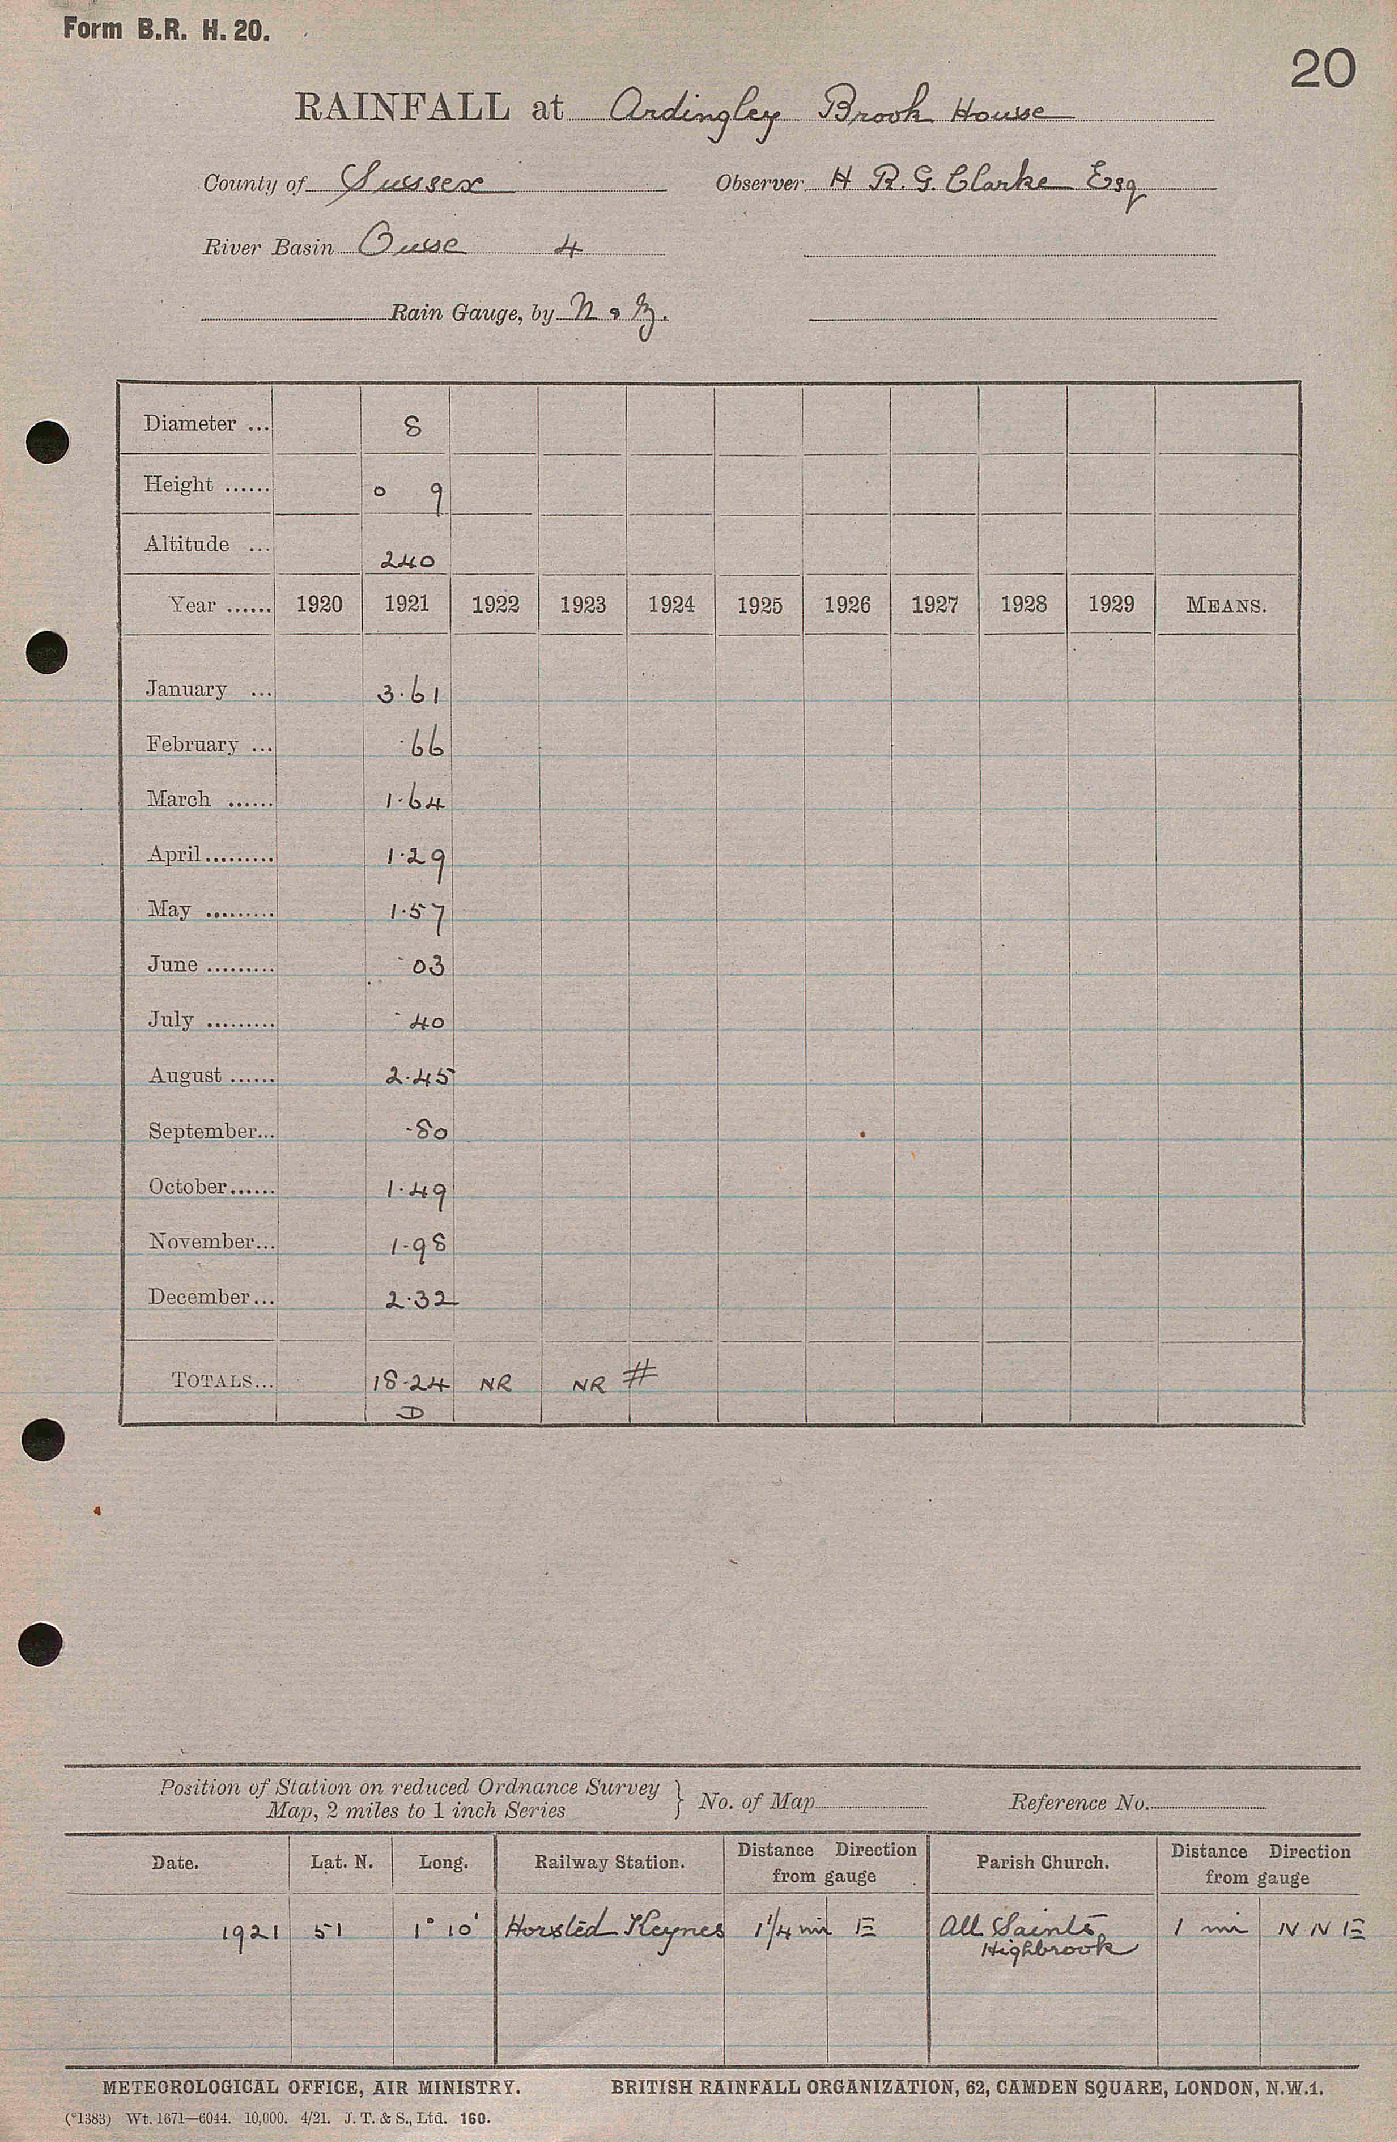 Form B.R. H. 20.
20
RAINFALL at Ardingley Brook House
County of Sussex Observer H R. G. Clarke Esq
River Basin Ouse 4
Rain Gauge, by N & Z.
Diameter ... 8
Height ...... 0 9
Altitude ... 240
Year ...... 1920 1921 1922 1923 1924 1925 1926 1927 1928 1929 MEANS.
January ... 3.61
February ... .66
March ...... 1.64
April......... 1.29
May ......... 1.57
June ......... .03
July ......... .40
August ...... 2.45
September... .80
October...... 1.49
November... 1.98
December... 2.32
TOTALS... 18.24 NR NR #
D
Position of Station on reduced Ordnance Survey
Map, 2 miles to 1 inch Series } No. of Map Reference No.
Date. Lat. N. Long. Railway Station. Distance Direction from gauge Parish Church. Distance Direction from gauge
1921 51 1° 10' Horsted Keynes 1 1/4 mi E All Saints 1 mi N N E
Highbrook
METEOROLOGICAL OFFICE, AIR MINISTRY. BRITISH RAINFALL ORGANIZATION, 62, CAMDEN SQUARE, LONDON, N.W.1.
(*1383) Wt. 1671—6044. 10,000. 4/21. J. T. & S., Ltd. 160.